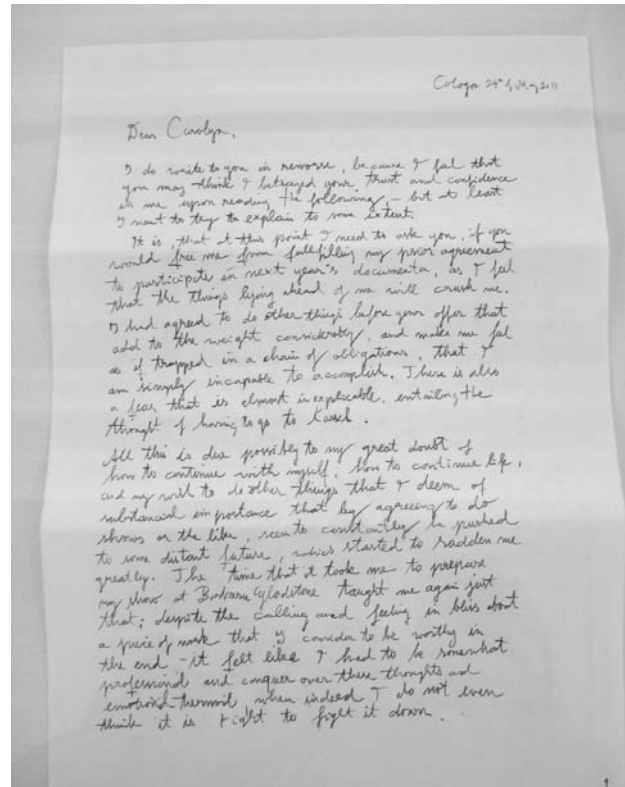 Cologn 24th of May 2011
Dear Carolyn,
I do write to you in remorse, because I feel that
you may think I betrayed your trust and confidence
in me upon reading the following, – but at least
I want to try to explain to some extent.
It is, that at this point I need to ask you, if you
would free me from fullfilling my prior agreement
to participate in next year's documenta, as I feel
that the things lying ahead of me will crush me.
I had agreed to do other things before your offer that
add to the weight considerably, and make me feel
as if trapped in a chain of obligations, that I
am simply incapable to accomplish. There is also
a fear, that is almost inexplicable, entailing the
thought of having to go to Kassel.
All this is due possibly to my great doubt of
how to continue with myself, how to continue life,
and my wish to do other things that I deem of
substancial importance that by agreeing to do
shows or the like, seem to constantly be pushed
to some distant future, which started to sadden me
greatly. The time that it took me to prepare
my show at Barbara Gladstone taught me again just
that; despite the calling and feeling in bliss about
a piece of work that I consider to be worthy in
the end – it felt like I had to be somewhat
professional and conquer over these thoughts and
emotional thermoil, when indeed I do not even
think it is right to fight it down.
1